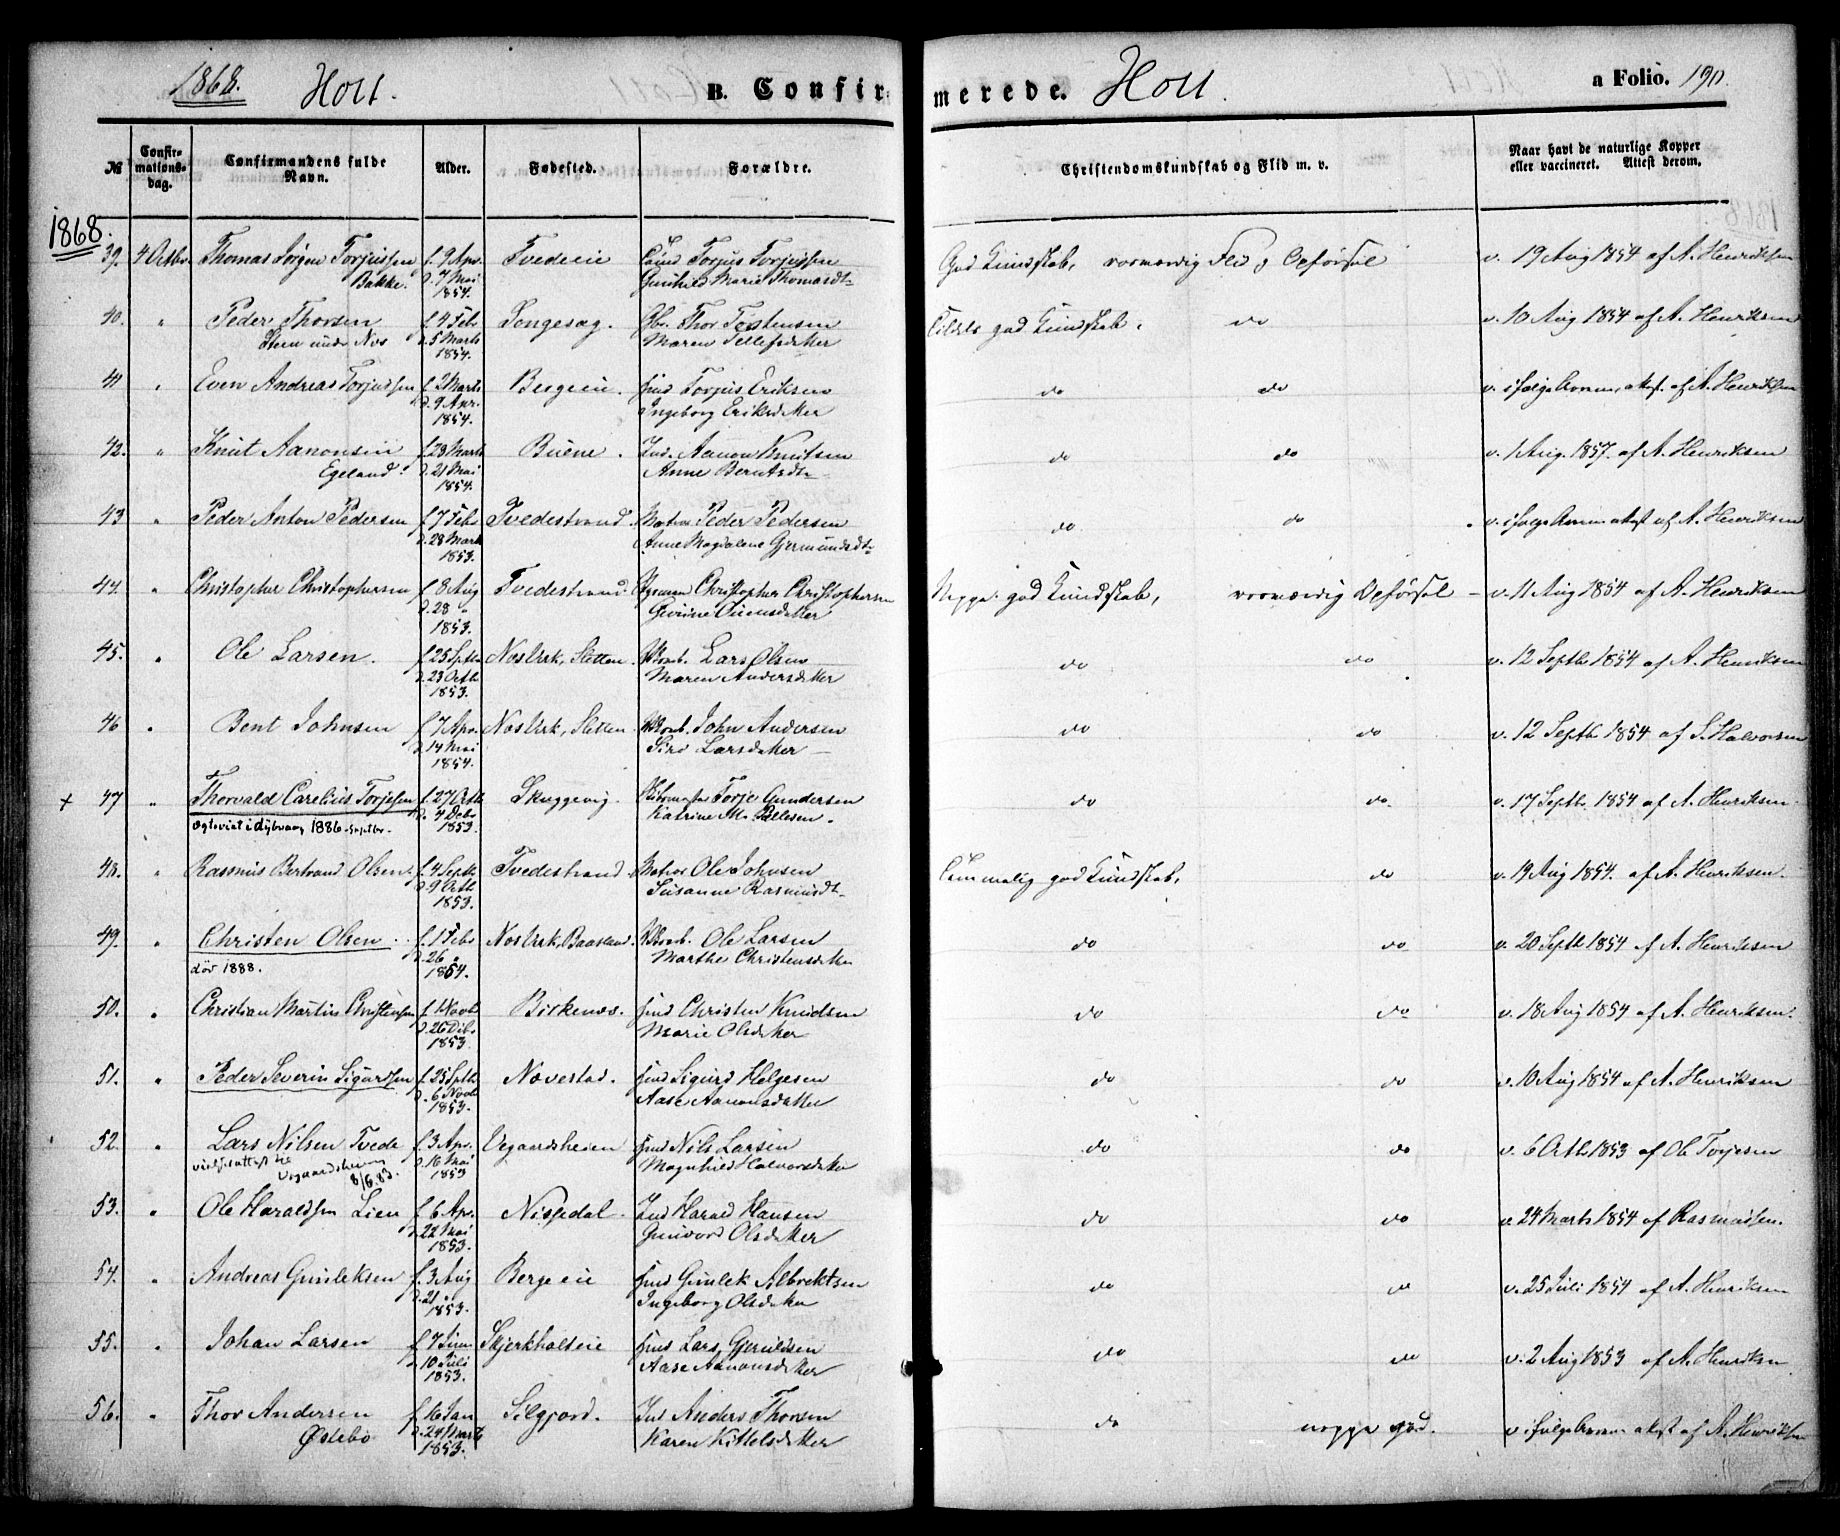 1868. Holt. B. Confirmerede. Holt. a Folio. 190.
№ Confirmationsdag. Confirmandens fulde Navn. Alder. Fødested. Forældre. Christendomskundskab og Flid m. v. Naar havt de naturlige Kopper eller vaccineret. Attest derom.
1868.
39. 4 Octbr. Thomas Jørgen Torjussen f. 9 Apr. Tvedeeie Torjus Torjussen God Kundskab, vorværdig Flid og Opførsel v. 19 Aug 1854 af A. Henriksen
Bakke. d. 7 Mai Gunhild Marie Thomasdt
1854.
40. " Peder Thorsen f. 4 Febr Songesag. Gbr. Thor Tostensen Tildels god Kundskab. do v. 10 Aug 1854 af A. Henriksen
under Næs d. 5 Marts Maren Tellefsdatter
1854.
41 " Even Andreas Torjussen f. 2 Marts Bergeeie. Torjus Eriksen do do v. ifølge Attest af A. Henriksen
d. 9 Apr. Ingeborg Eriksdatter
1854.
42. " Knut Aanonsen f. 28 Marts Buene. Ind. Aanon Knutsen do do v. 1 Aug. 1857. af A. Henriksen
Egeland. d. 21 Mai Anne Berntsdt
1854.
43 " Peder Anton Pedersen f. 7 Febr Tvedestrand. Matros Peder Pedersen do do v. ifølge Attest af A. Henriksen
d. 28 Marts Anne Magdalene Gjermundsdt
1853.
44. " Christopher Christophersen f. 8 Aug Tvedestrand. Christopher Christophersen Nogga god Kundskab, vorværdig Opførsel v. 11 Aug 1854 af A. Henriksen
d. 28 "
1853.
45. " Ole Larsen. f. 25 Septbr Næs Verk, Sletten. Lars Olsen do do v. 12 Septbr 1854 af A. Henriksen
d. 23 Octb Maren Andersdatter
1853.
46 " Bent Johnsen f. 7 Apr. Næs Verk, Sletten. John Andersen do do v. 12 Septb 1854 af S. Halvorsen
d. 14 Mai Siri Larsdatter
1854.
+ 47 " Thorvald Carelius Torjesen f. 27 Octb Skuggevig. Torje Gundersen do do v. 17 Septb. 1854 af A. Henriksen.
Ogteviet i Dybvaag 1886. Septbr. d. 4 Decbr Katrine M. Pellesen.
1853.
48. " Rasmus Bertrand Olsen. f. 4 Septb Tvedestrand Matros Ole Johnsen Temmelig god Kundskab, do v. 19 Aug 1854. af A. Henriksen.
d. 9 Octb Susanne Rasmusdt
1853.
49. " Christen Olsen f. 1 Febr Næs Verk, Baasland. Ole Larsen do do v. 20 Septb 1854 af A. Henriksen
døv 1888. d. 26 " Marthe Christensdatter
1854.
50. " Christian Martin Christensen f. 1 Novb Birkenæs. Christen Knudsen do do v. 18 Aug 1854 af A. Henriksen.
d. 26 Decbr Marie Olsdatter
1853.
51. " Peder Severin Sigurdsen f. 25 Septb Nævestad. Sigurd Helgesen do do v. 10 Aug 1854 af A. Henriksen
d. 6 Novb Aase Aanonsdatter
1853.
52. " Lars Nilsen Tvede f. 3 Apr. Vegaardsheien Nils Larsen do do v. 6 Octb 1853 af Ole Torjesen
vielsesattest til Vegaardsheien 8/6.83. d. 16 Mai Magnhild Halvorsdatter
1853
53. " Ole Haraldsen Lien f. 6 Apr. Nissedal. Ind Harald Hansen do do v. 24 Marts 1854 af Rasmussen.
d. 22 Mai Gunvord Olsdatter
1853.
54. " Andreas Gunleksen f. 3 Aug Bergeeie Gunlek Albrektsen do do v. 25 Juli 1854 af A. Henriksen
d. 21 " Ingeborg Olsdatter
1853.
55. " Johan Larsen f. 7 Juni Skjerkholteie Lars Gjeruldsen do do v. 2 Aug 1853 af A. Henriksen
d. 10 Juli Aase Aanonsdatter
1853.
56. " Thor Andersen f. 16 Jan Silgjord. Ind Anders Thorsen do nogga god. v. ifølge Attest af A. Henriksen
Østebø d. 24 Marts Karen Kittelsdatter
1853.